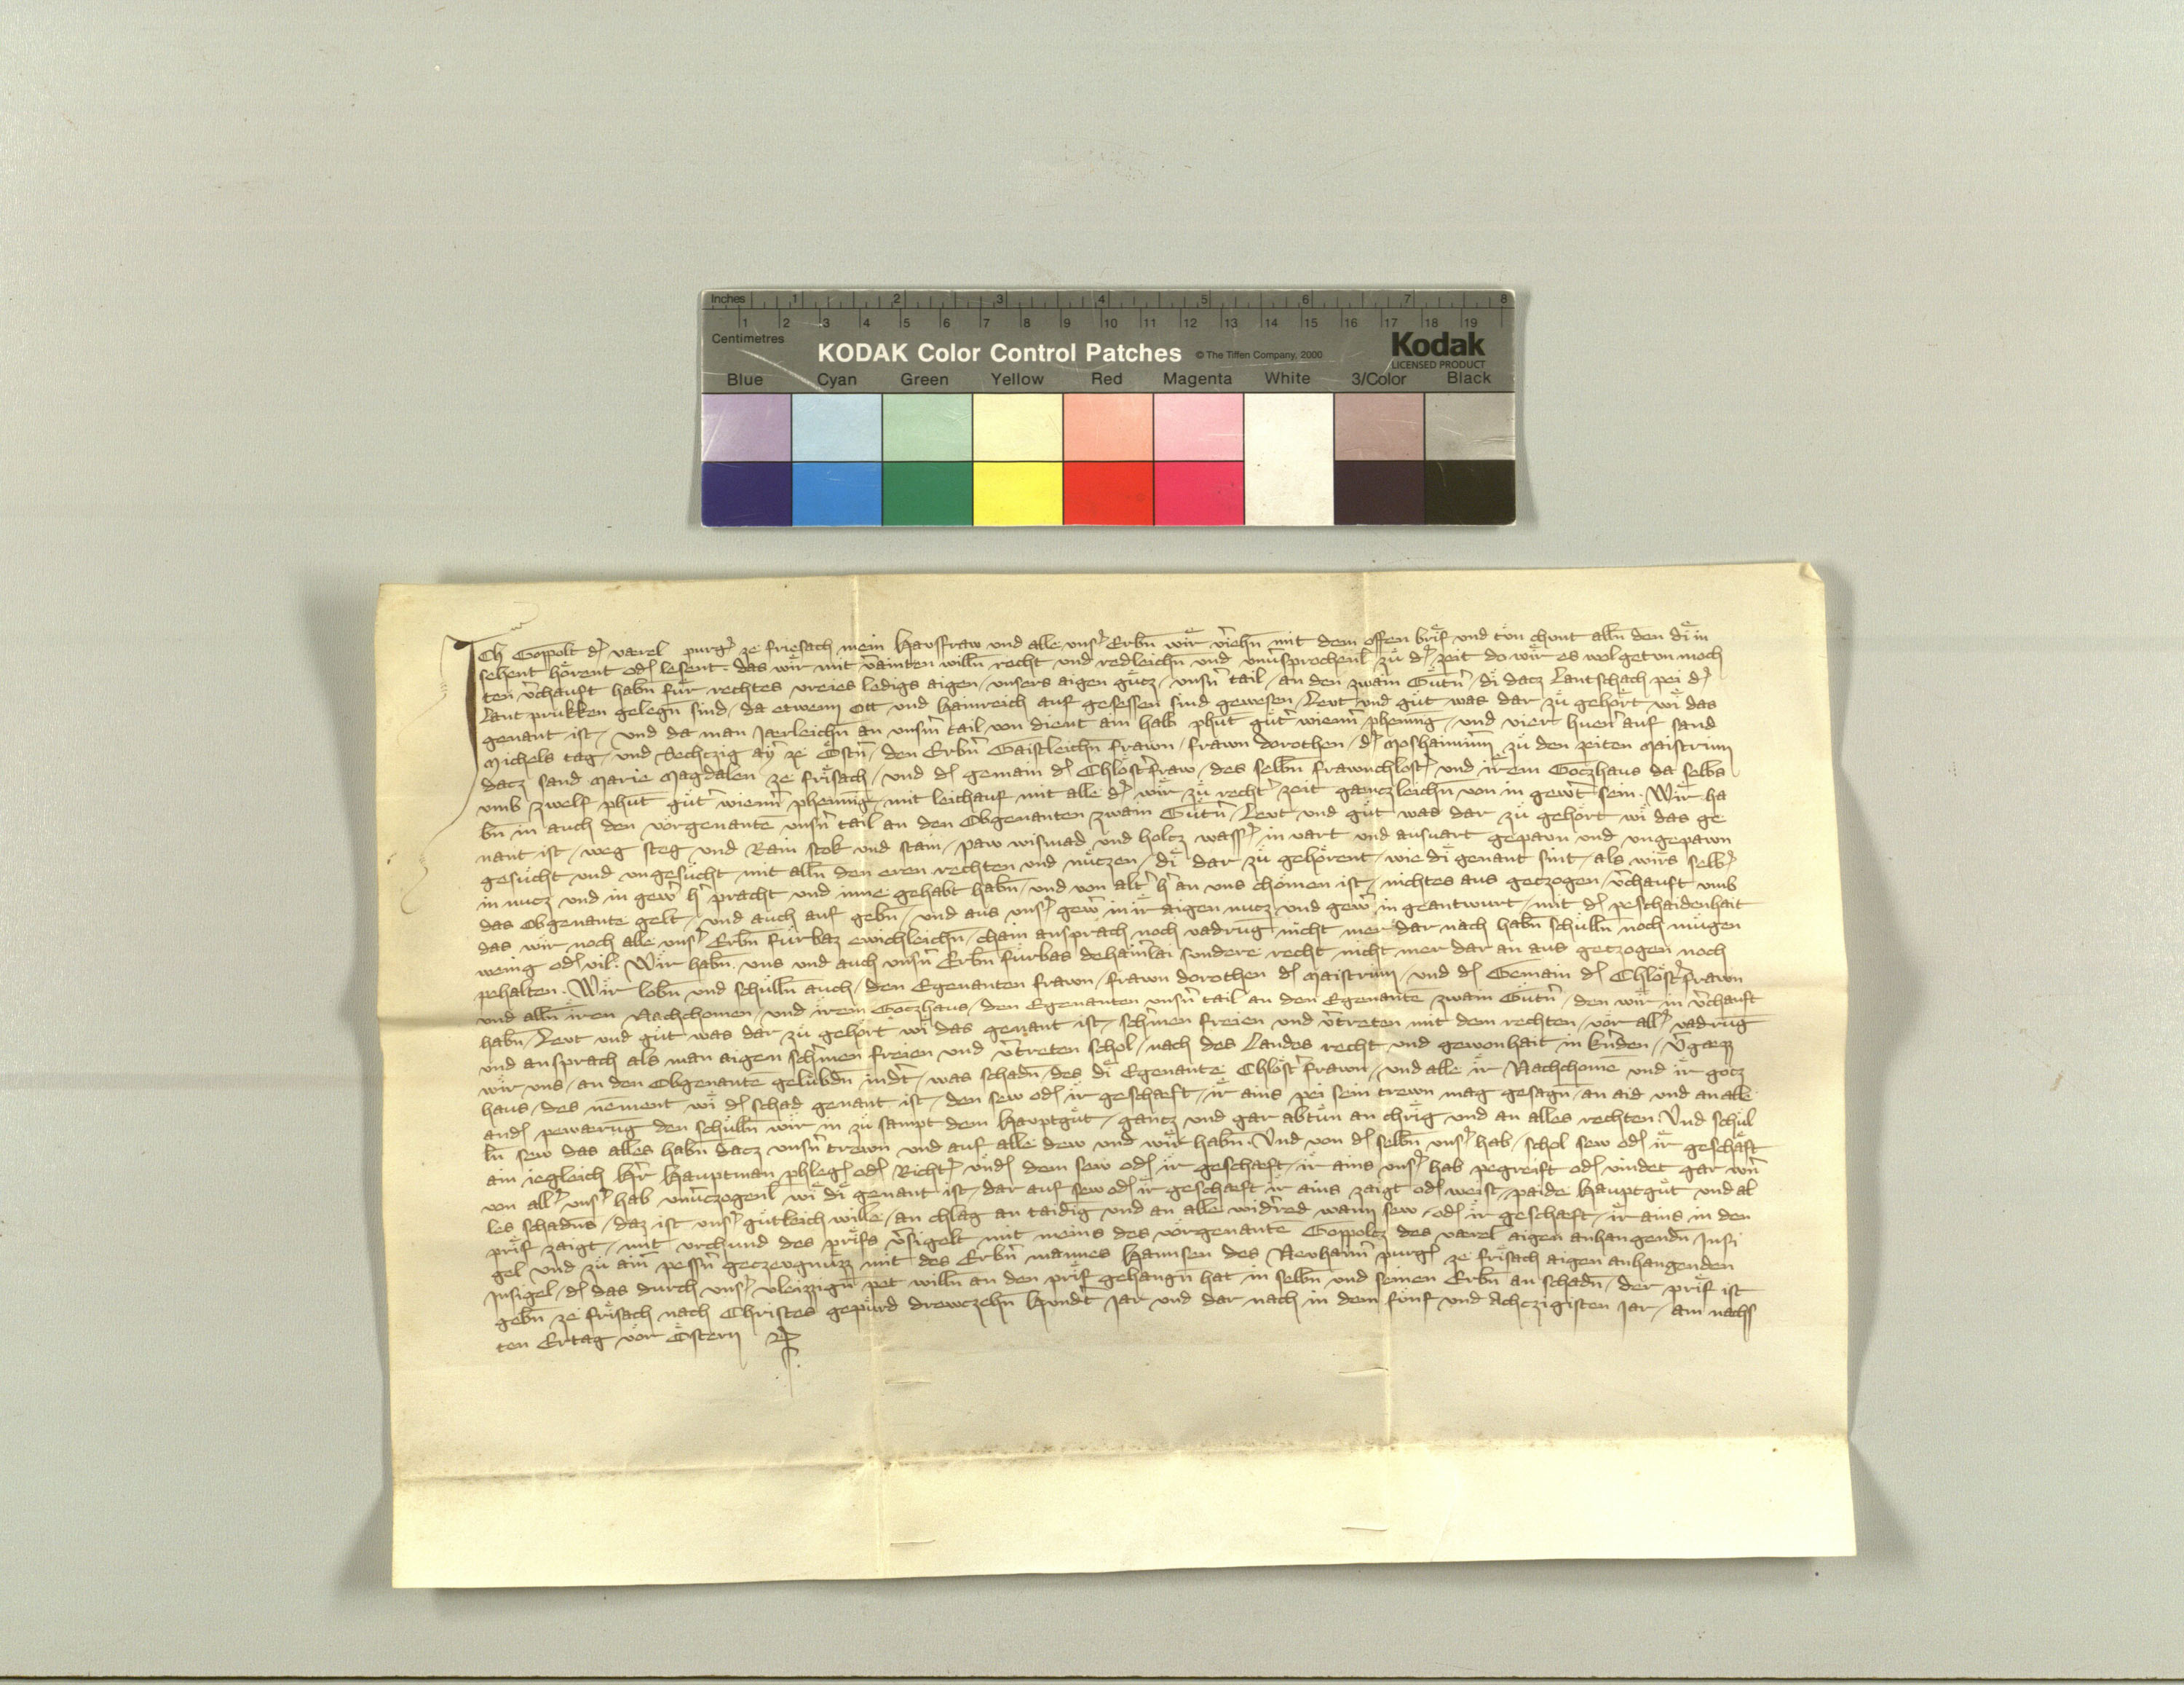 Inches 1 2 3 4 5 6 7 8
1 2 3 4 5 6 7 8 9 10 11 12 13 14 15 16 17 18 19
Centimetres
KODAK Color Control Patches © The Tiffen Company, 2000 Kodak
LICENSED PRODUCT
Blue Cyan Green Yellow Red Magenta White 3/Color Black
Ich Goppolt d̾ varel purg̾ ze friesach mein Hausfraw vnd alle vns̾ Erbn̄ wir v̾iehn̄ mit dem offen brif vnd tün chunt alln̄ den di in
sehent hörent od̾ lesent. das wir mit v̾ainten willn̄ recht vnd redleichn̄ vnd vnu̾sprochenl̄ zü d̾ zeit do wir es wol getvn moch
ten v̾chauft habn̄ für rechtes vreies ledigs aigen / vnsers aigen gücz / vnsn̾ tail / an den zwain Gütn̾ / di dacz Lantschach pei d̾
Lant prukken gelegn̄ sind / da etwenn Ott vnd Hainreich auf gesessen sind gewesen / Levt vnd güt was dar zü gehört wi das
genant ist / vnd da man Jaerleichn̄ an vnsm̾ tail von dient ain halb phūt güt̾ wienn̾ phening / vnd vier huen̾ auf sand
Michels tag / vnd Sechczig ay̾ ze Östn̾ / den Erbn̾ Gaistleichn̄ frawn / frawn dorothen / d̾ Moshaimin̄n zü den zeiten Maistrinn
dacz sand Marie Magdalen ze frisach / vnd d̾ gemain d̾ Chlöst̾fraw / des selbn̄ frawnchlost̾ vnd irem Goczhaus da selbs
vmb zwelf phūt güt̾ wienn̾ phennig / mit leichauf mit alle d̾ wir zü recht̾ zeit gaenczleichn̄ von in gew̾t sein. Wir ha
bn̄ in auch den vorgenantē vnsn̾ tail an den Obgenanten zwain Gütn̾ / Levt vnd güt was dar zü gehört wi das ge
nant ist / weg steg / vnd Rain stok vnd stain / paw wismad vnd holtz wass̾ / in vart vnd ausuart gepavn vnd vngepawn
gesücht vnd vngesücht mit alln̄ den eren rechten vnd nüczen / di dar zü gehörent / wie di genant sint / als wirs selb̾
in nucz vnd in gew̾ h̾ pracht vnd inne gehabt habn̄ / vnd von alt̾ h̾ an vns chömen ist / nichtes aus geczogen / v̾chauft vmb
das Obgenante gelt / vnd auch auf gebn̄ / vnd aus vns̾ gew̾ in ir aigen nucz vnd gew̾ in geantwurt / mit d̾ peschaidenhait
das wir noch alle vns̾ Erbn̄ fürbaz ewichleichn̄ / chain ansprach noch vadrūg nicht mer dar nach habn̄ schülln̄ noch mügen
wenig od̾ vil. Wir habn̄ vns vnd auch vnsn̾ Erbn̄ fürbas dehain̾lai sundere recht nicht mer dar an aus geczogen noch
pehalten. Wir lobn̄ vnd schülln̄ auch / den Egenanten frawn / frawn dorothen d̾ Maistrinn / vnd d̾ Gemain d̾ Chlöst̾frawn
vnd alln̄ iren Nachchomen / vnd irem Goczhaus / den Egenanten vnsn̾ tail an den Egenantē zwain Gütn̾ / den wir in v̾chauft
habn̄ / Levt vnd güt was dar zü gehört wi das genant ist / sch̾men freien vnd v̾treten mit dem rechten / vor all̾ vadrūg
vnd ansprach als man aigen sch̾men freien vnd v̾treten schol / nach des Landes recht vnd gewonhait in k̾nden / v̾gaezz
wir vns / an den Obgenantē gelübdn̄ indt̾ / was schadn̄ / des di Egenante Chlöst̾frawn / vnd alle ir Nachchomē vnd ir gocz
haus / des nēment wi d̾ schad genant ist / den sew od̾ ir geschaeft / ir ains pei sein trewn mag gesagn̄ / an aid vnd an alle
and̾ pewarūg den schülln̄ wir in zü sampt dem Hauptgüt / gancz vnd gar abtün an chrig vnd an alles rechten. Vnd schül
ln̄ sew das alles habn̄ dacz vnsn̾ trewn vnd auf alle dew vnd wir habn̄. Vnd von d̾ selbn̄ vns̾ hab / schol sew od̾ ir geschäft
ain iegleich H̾r Hauptman phleg̾ od̾ Richt̾ / vnd̾ dem sew od̾ ir geschaeft / ir ains vns̾ hab pegreift od̾ vindet gar w̾n
von all̾ vns̾ hab vnu̾czogenl̄ wi di genant ist / dar auf sew od̾ ir geschaeft ir ains zaigt od̾ weist / paide Hauptgüt vnd al
les schadn̄s / daz ist vns̾ gütleich wille / an chlag an taidig vnd an alle wid̾red wann sew / od̾ ir geschaeft / ir ains in den
prif zaigt / mit vrchund des prifs v̾sigelt mit meins des vorgenantē Goppolcz des varel aigen anhangendn̄ Insi
gel vnd zü aim pessn̾ geczeugnüzz mit des Erbn̾ mannes Hannsen des Nevhann̾ purg̾ ze frisach aigen anhangenden
Insigel / d̾ das durch vns̾ vleizzign̄ pet willn̄ an den prif gehangn̄ hat im selbn̄ vnd seinen Erbn̄ an schadn̄ / der prif ist
gebn̄ ze frisach nach Christes gepürd drewczehn̄ Hundt̾ Jar vnd dar nach in dem fünf vnd Achczigisten Jar / am nachs
ten Ertag vor Östern